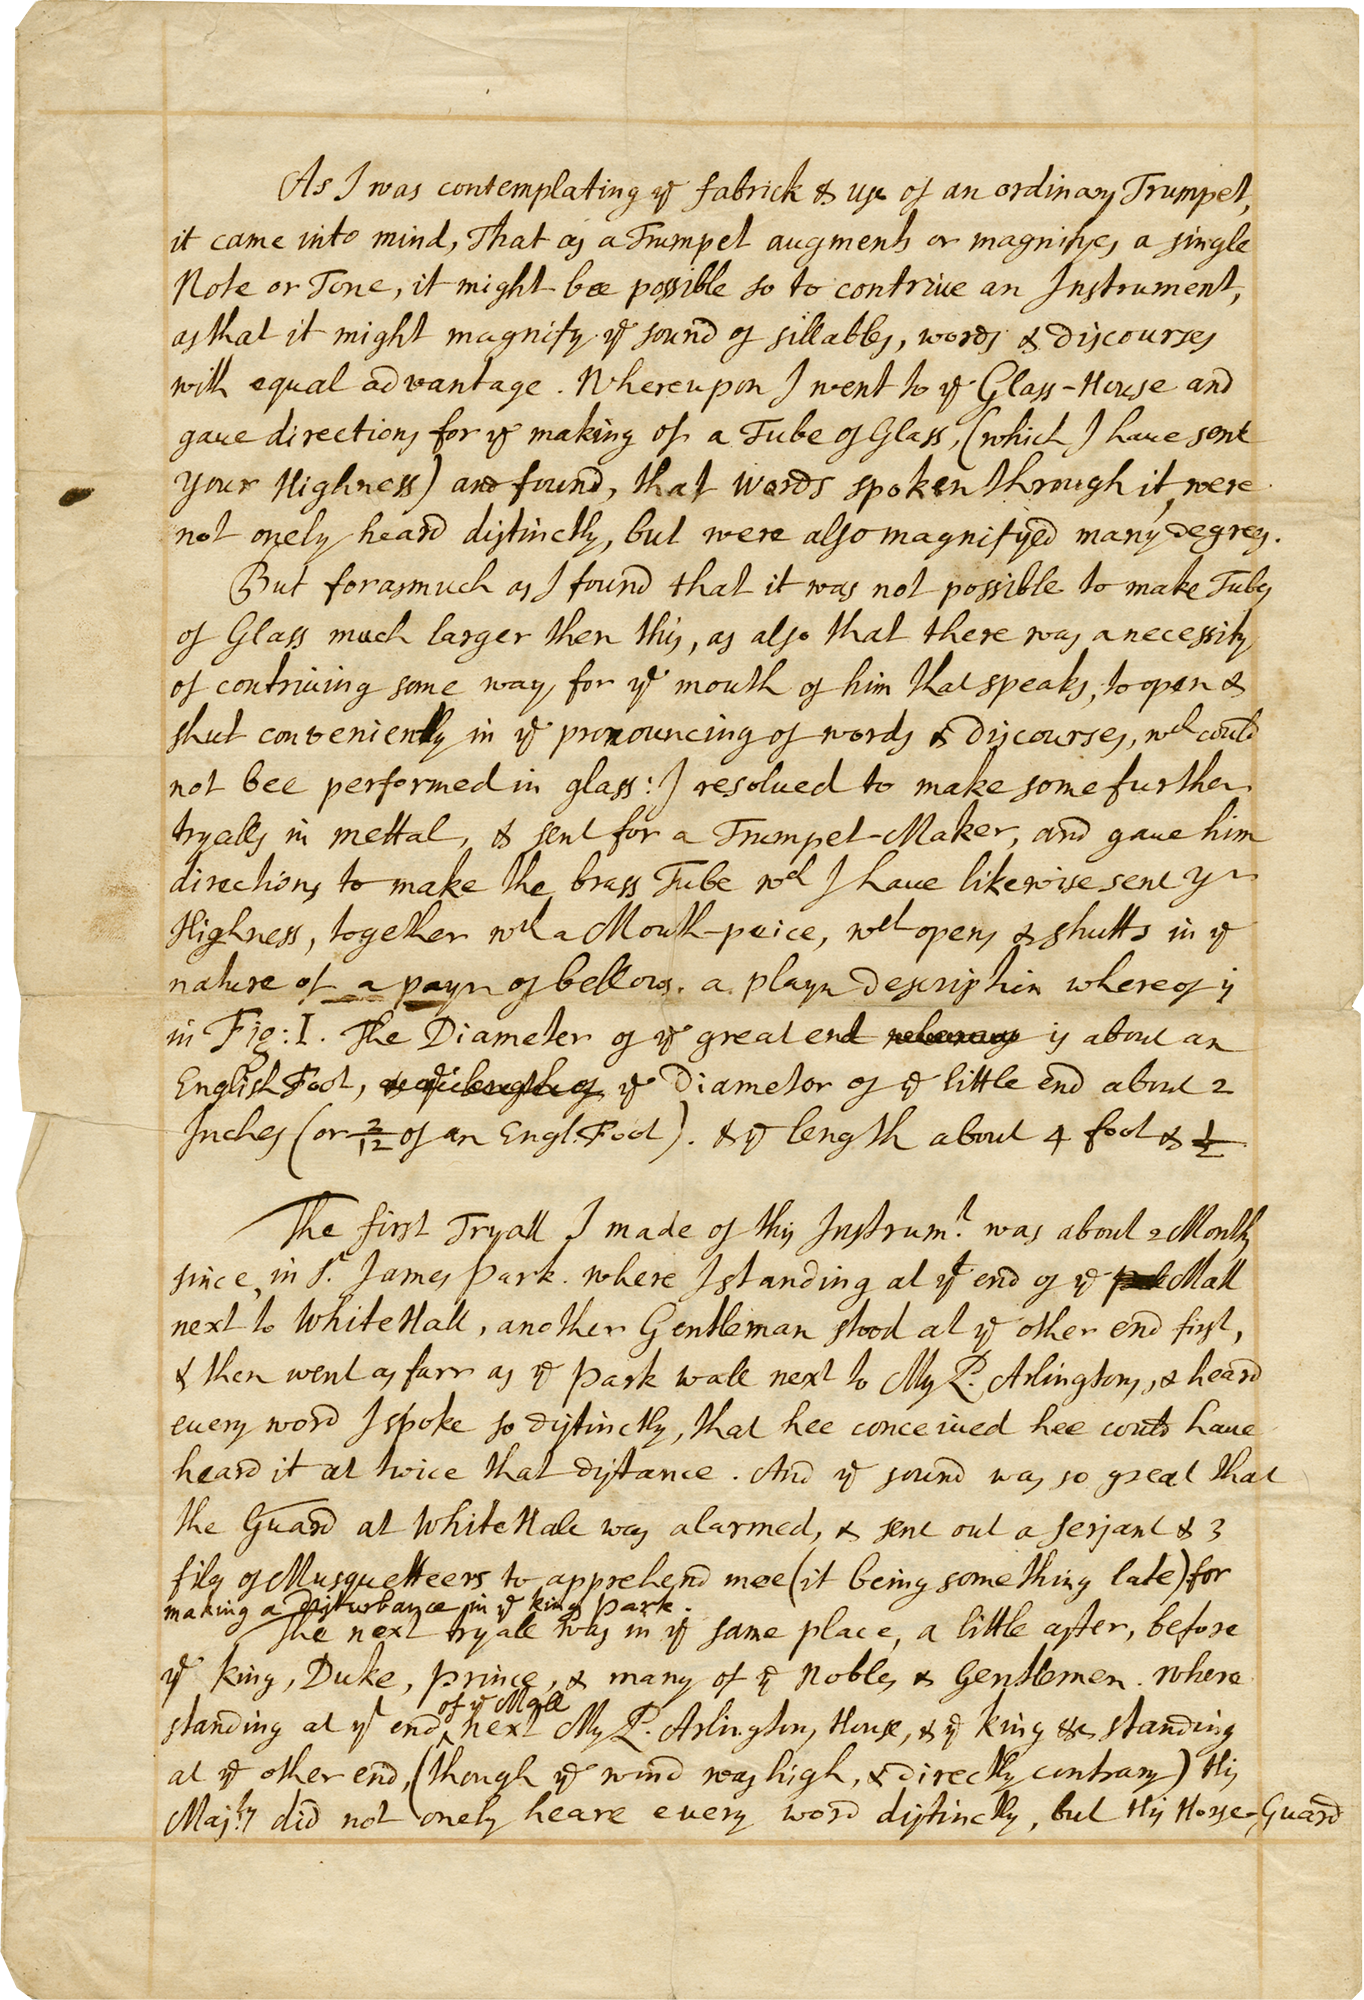 As I was contemplating yͤ fabrick & use of an ordinary Trumpet,
it came into mind, That as a Trumpet augments or magnifyes a single
Note or Tone, it might bee possible so to contriue an Instrument,
as that it might magnify yͤ sound of sillables, words & discourses
with equal advantage. Whereupon I went to yͤ Glass-House and
gaue directions for yͤ making of a Tube of Glass, (which I haue sent
your Highness) and found, that words spoken through it, were
not onely heard distinctly, but were also magnifyed many degrees.
But forasmuch as I found that it was not possible to make Tubes
of Glass much larger then this, as also that there was a necessity
of contriuing some way, for yͤ mouth of him that speaks, to open &
shut conveniently in yͤ pronouncing of words & Discourses, wch could
not bee performed in glass: I resolued to make some further
tryalls in mettal, & sent for a Trumpet-Maker, and gaue him
directions to make the brass Tube wch I haue likewise sent yr
Highness, together wth a Mouth-peice, wch opens & shutts in yͤ
nature of a payr of bellows. a playn Description whereof is
in Fig: I. The Diameter of yͤ great end is about an
English Foot, yͤ Diameter of yͤ little end about 2
Inches (or 2/12 of an Engl. Foot). & yͤ length about 4 foot & 1/2
The first Tryall I made of this Instrumt. was about 2 Months
since, in St. James Park. where I standing at yͤ end of yͤ Mall
next to WhiteHall, another Gentleman stood at yͤ other end first,
& then went as farr as yͤ Park wall next to My L. Arlingtons, & heard
euery word I spoke so distinctly, that hee conceiued hee could haue
heard it at twice that distance. And yͤ sound was so great that
the Guard at WhiteHall was alarmed, & sent out a serjant & 3
files of Musquetteers to apprehend mee (it being something late) for
making a disturbance in yͤ kings Park.
The next tryall was in yͤ same place, a little after, before
yͤ king, Duke, prince, & many of yͤ Nobles & Gentlemen. Where
of yͤ Mall
standing at yͤ end, next My L. Arlingtons House, & yͤ king &c standing
at yͤ other end, (though yͤ wind was high, & directly contrary) His
Majty did not onely heare euery word distinctly, but His Horse-Guard